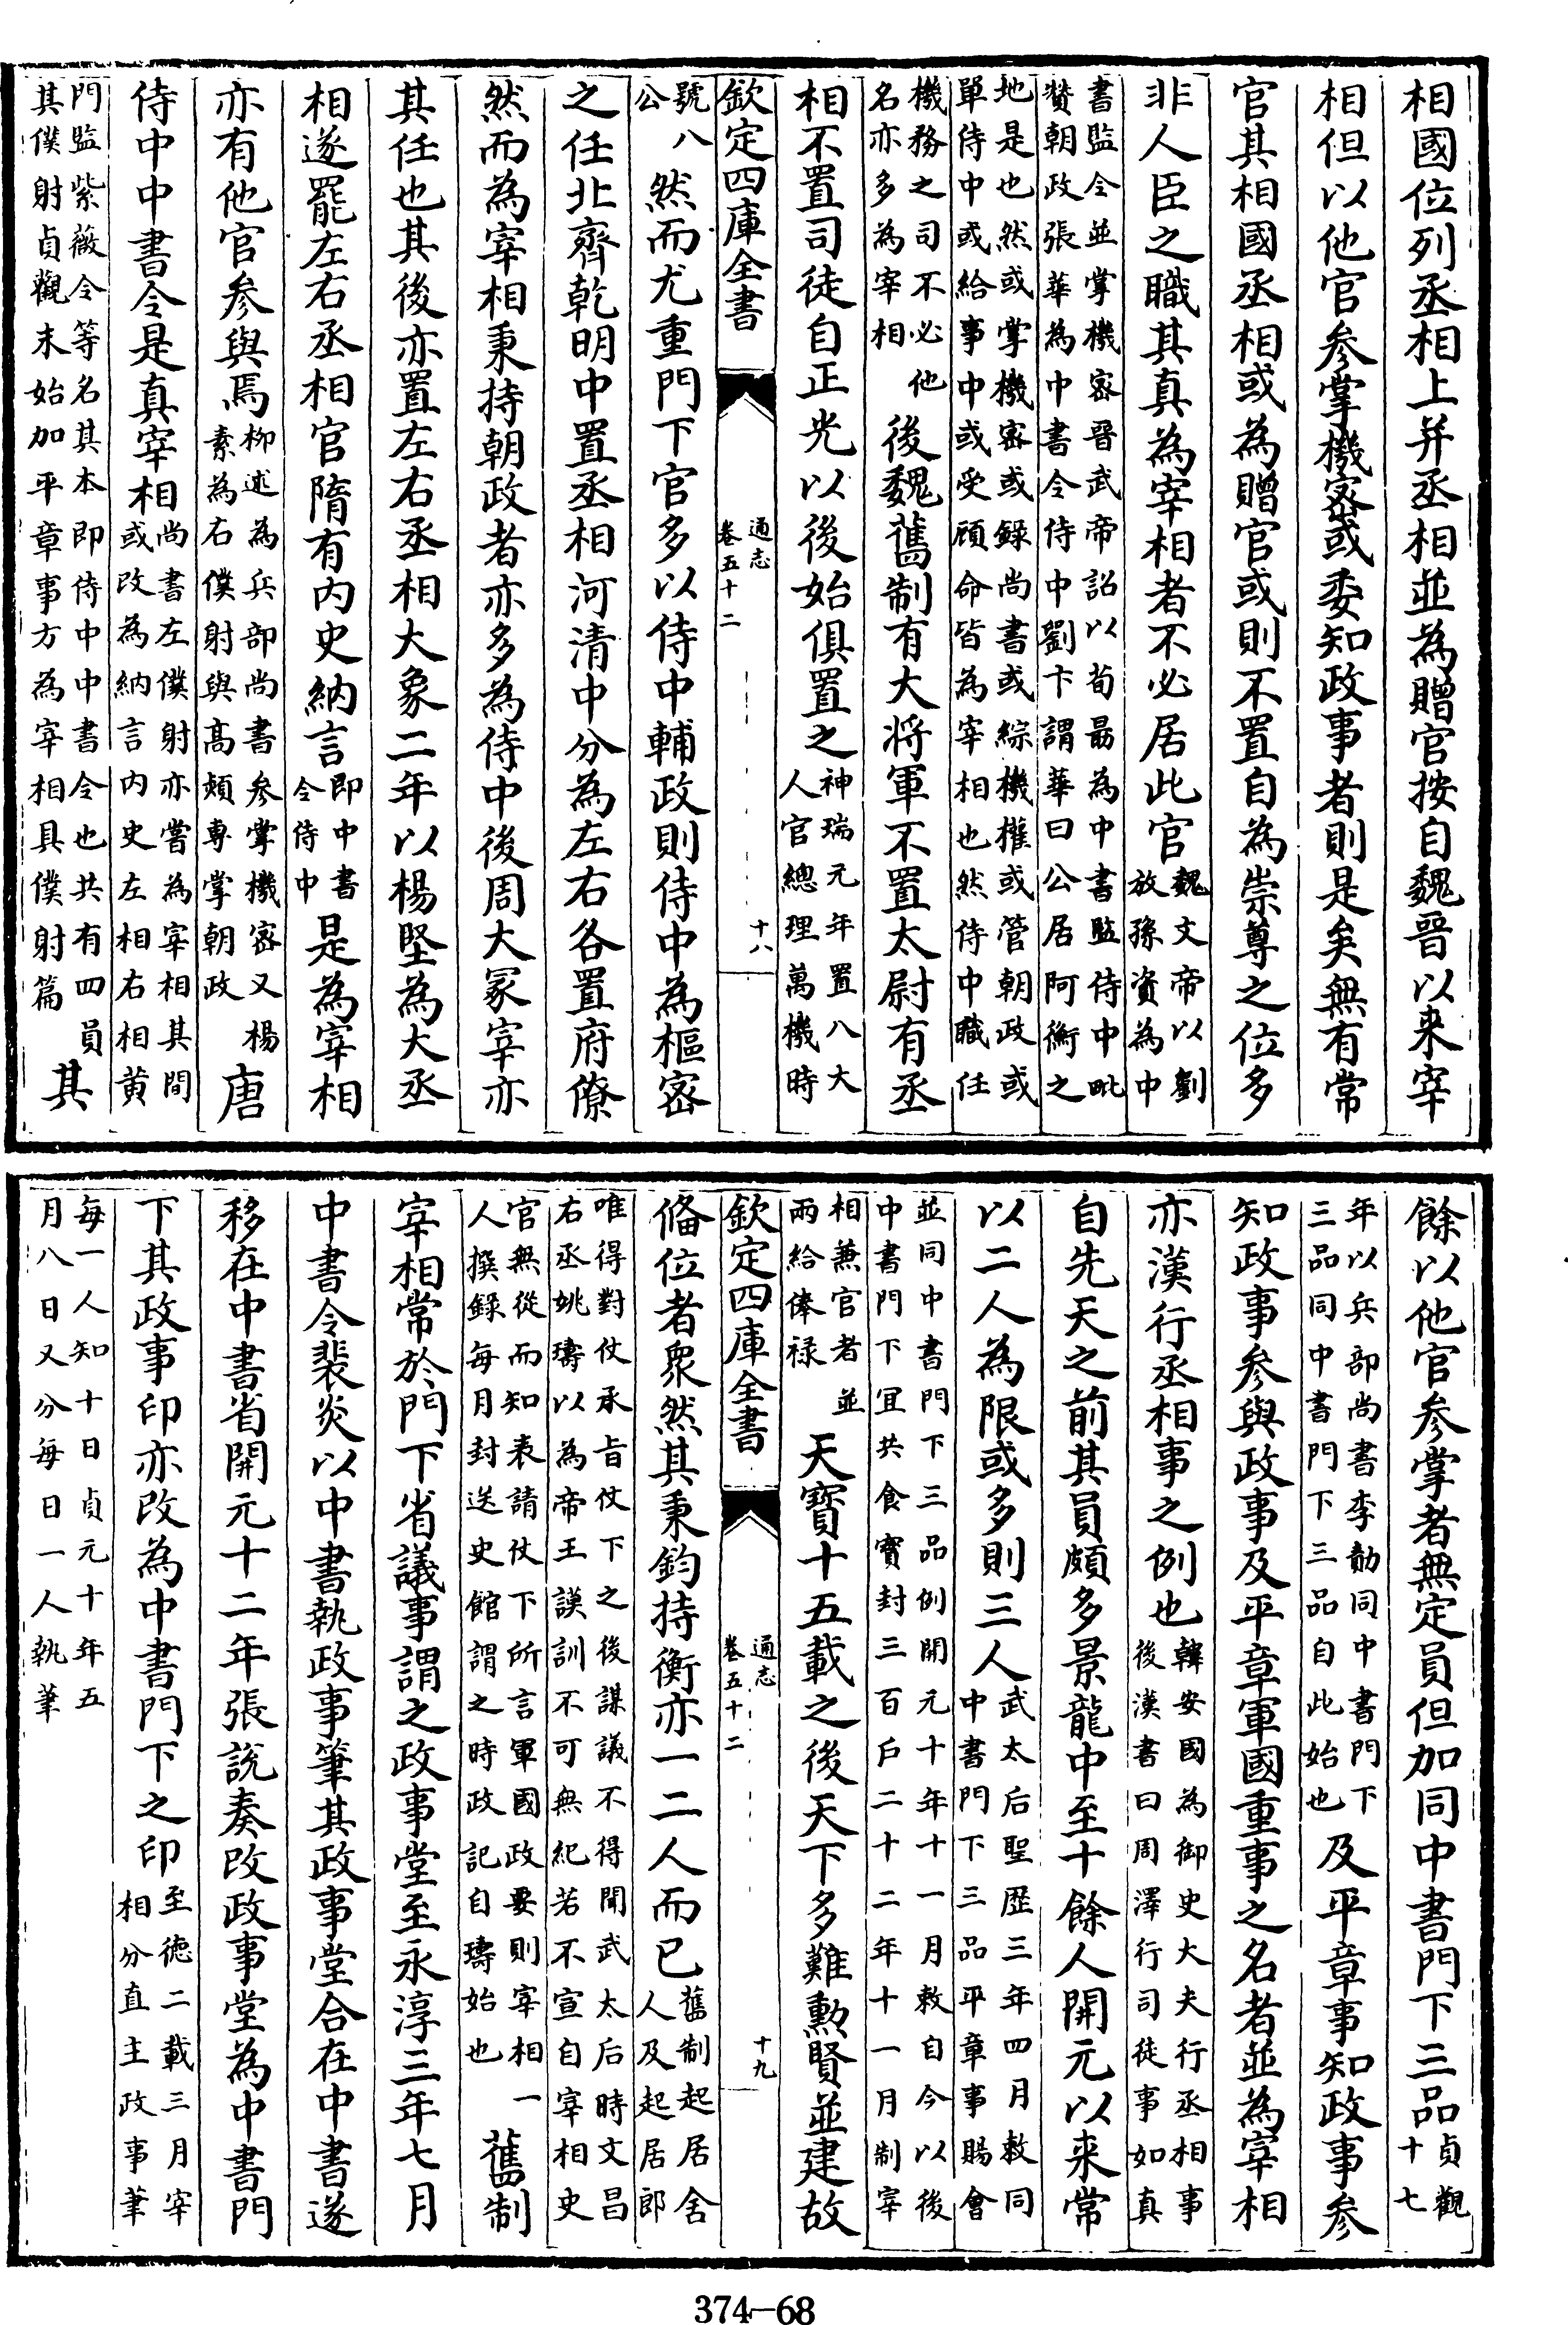 相國位列丞相上并丞相並為贈官按自魏晉以来宰
相但以他官参掌機宻或委知政事者則是矣無有常
官其相國丞相或為贈官或則不置自為崇尊之位多
非人臣之職其真為宰相者不必居此官
魏文帝以劉
放孫資為中
書監令並掌機宻晉武帝詔以荀勗為中書監侍中毗
賛朝政張華為中書令侍中劉卞謂華曰公居阿衡之
地是也然或掌機宻或録尚書或綜機權或管朝政或
單侍中或給事中或受顧命皆為宰相也然侍中職任
機務之司不必他
名亦多為宰相
後魏舊制有大将軍不置太尉有丞
相不置司徒自正光以後始俱置之
神瑞元年置八大
人官總理萬機時
欽定四庫全書
通志
卷五十二
十八
號八
公
然而尤重門下官多以侍中輔政則侍中為樞宻
之任北齊乾明中置丞相河清中分為左右各置府僚
然而為宰相秉持朝政者亦多為侍中後周大冢宰亦
其任也其後亦置左右丞相大象二年以楊堅為大丞
相遂罷左右丞相官隋有内史納言
即中書
令侍中
是為宰相
亦有他官参與焉
柳述為兵部尚書参掌機宻又楊
素為右僕射與髙熲専掌朝政
唐
侍中中書令是真宰相
尚書左僕射亦嘗為宰相其間
或改為納言内史左相右相黄
門監紫薇令等名其本即侍中中書令也共有四員
其僕射貞觀末始加平章事方為宰相具僕射篇
其
餘以他官参掌者無定員但加同中書門下三品
貞觀
十七
年以兵部尚書李勣同中書門下
三品同中書門下三品自此始也
及平章事知政事参
知政事参與政事及平章軍國重事之名者並為宰相
亦漢行丞相事之例也
韓安國為御史大夫行丞相事
後漢書曰周澤行司徒事如真
自先天之前其員頗多景龍中至十餘人開元以来常
以二人為限或多則三人
武太后聖歴三年四月敕同
中書門下三品平章事賜會
並同中書門下三品例開元十年十一月敕自今以後
中書門下宜共食實封三百戶二十二年十一月制宰
相兼官者並
兩給俸禄
天寳十五載之後天下多難勲賢並建故
欽定四庫全書
通志
卷五十二
十九
備位者衆然其秉鈞持衡亦一二人而已
舊制起居舍
人及起居郎
唯得對仗承旨仗下之後謀議不得聞武太后時文昌
右丞姚璹以為帝王謨訓不可無紀若不宣自宰相史
官無從而知表請仗下所言軍國政要則宰相一
人撰録每月封送史館謂之時政記自璹始也
舊制
宰相常於門下省議事謂之政事堂至永淳三年七月
中書令裴炎以中書執政事筆其政事堂合在中書遂
移在中書省開元十二年張說奏改政事堂為中書門
下其政事印亦改為中書門下之印
至德二載三月宰
相分直主政事筆
每一人知十日貞元十年五
月八日又分每日一人執筆
374-68